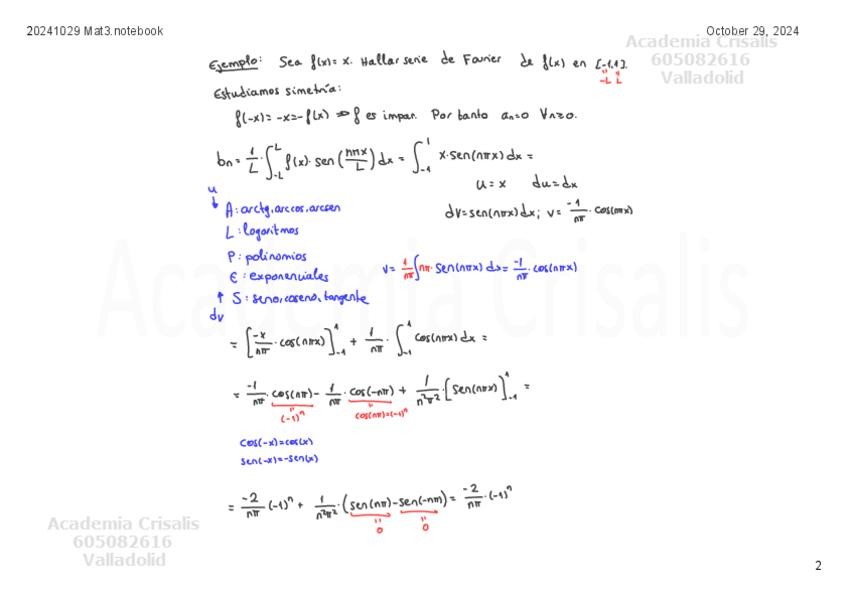 20241029 Mat3.notebook
October 29, 2024
Academia Crisalis
605082616
Valladolid
Ejemplo: Sea f(x)=x. Hallar serie de Fourier de f(x) en [-1,1].
-L L
Estudiamos simetría:
f(-x)=-x=-f(x) ⇒ f es impar. Por tanto an=0 ∀n≥0.
bn = 1/L · ∫_{-L}^{L} f(x)·sen(nπx/L)dx = ∫_{-1}^{1} x·sen(nπx)dx =
u=x du=dx
dv=sen(nπx)dx; v= -1/nπ · cos(nπx)
u
↓ A: arctg, arccos, arcsen
L: logaritmos
P: polinomios
E: exponenciales
↑ S: seno, coseno, tangente
dv
v= 1/nπ ∫ nπ· sen(nπx)dx = -1/nπ · cos(nπx)
= [-x/nπ · cos(nπx)]_{-1}^{1} + 1/nπ · ∫_{-1}^{1} cos(nπx)dx =
= -1/nπ · cos(nπ) - 1/nπ · cos(-nπ) + 1/n²π² · [sen(nπx)]_{-1}^{1} =
(-1)^n
cos(nπ)=(-1)^n
cos(-x)=cos(x)
sen(-x)=-sen(x)
= -2/nπ (-1)^n + 1/n²π² · (sen(nπ)-sen(-nπ)) = -2/nπ · (-1)^n
0 0
Academia Crisalis
605082616
Valladolid
2
Academia Crisalis